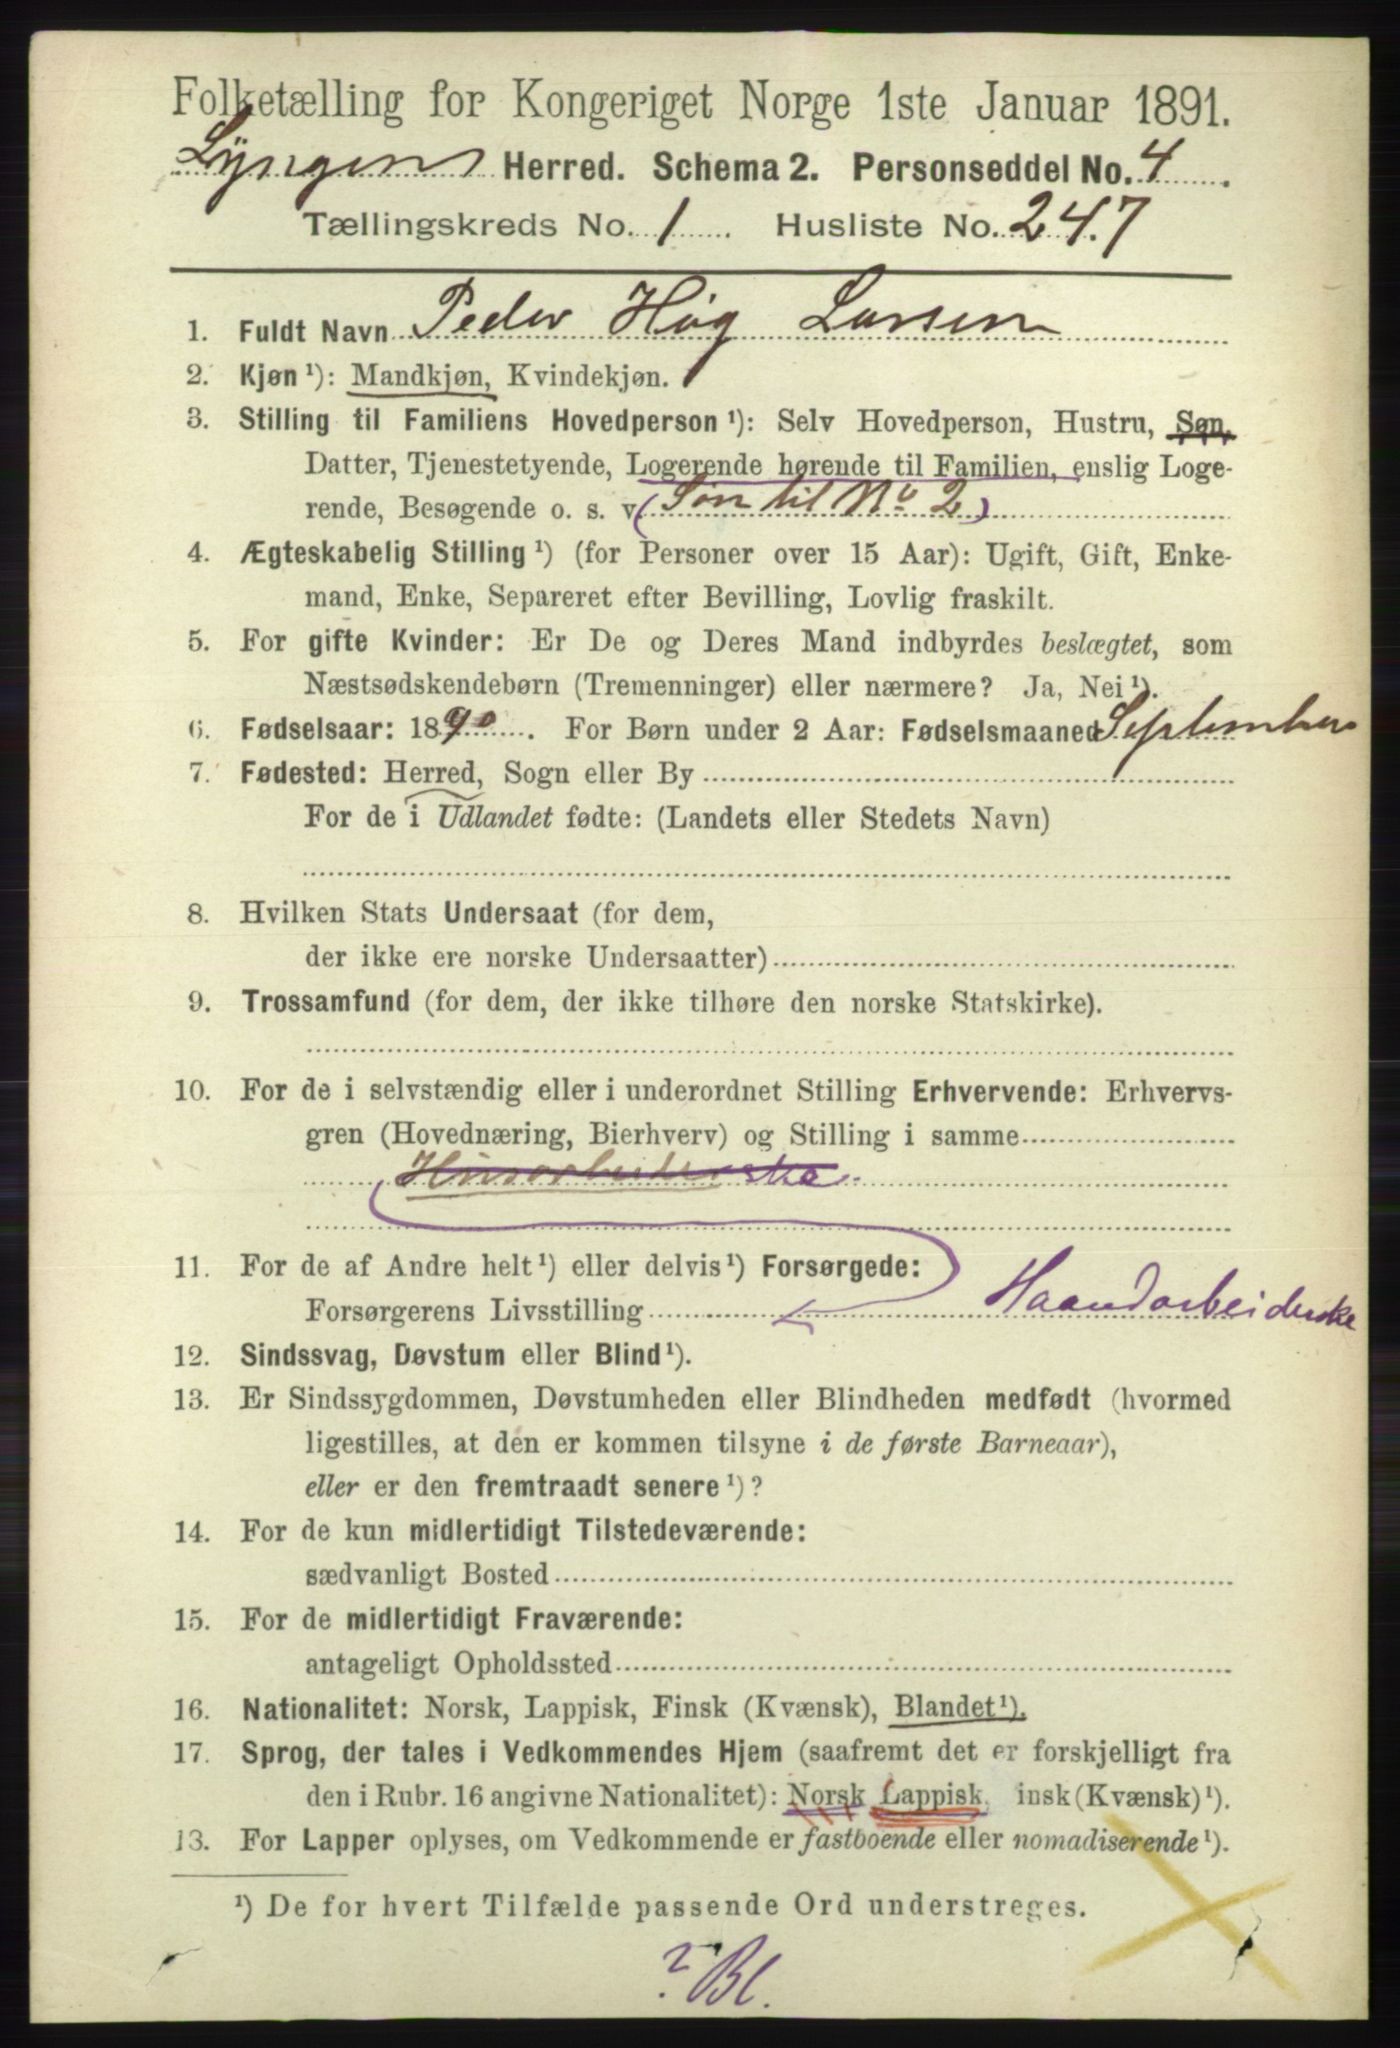 Folketælling for Kongeriget Norge 1ste Januar 1891.
Lyngens Herred. Schema 2. Personseddel No. 4
Tællingskreds No. 1 Husliste No. 247
1. Fuldt Navn Peder Høg Larsen
2. Kjøn ¹): Mandkjøn, Kvindekjøn.
3. Stilling til Familiens Hovedperson ¹): Selv Hovedperson, Hustru, Søn,
Datter, Tjenestetyende, Logerende hørende til Familien, enslig Loge-
rende, Besøgende o. s. v. (Søn til No 2)
4. Ægteskabelig Stilling ¹) (for Personer over 15 Aar): Ugift, Gift, Enke-
mand, Enke, Separeret efter Bevilling, Lovlig fraskilt.
5. For gifte Kvinder: Er De og Deres Mand indbyrdes beslægtet, som
Næstsødskendebørn (Tremenninger) eller nærmere? Ja, Nei ¹).
6. Fødselsaar: 1890. For Børn under 2 Aar: Fødselsmaaned September
7. Fødested: Herred, Sogn eller By
For de i Udlandet fødte: (Landets eller Stedets Navn)
8. Hvilken Stats Undersaat (for dem,
der ikke ere norske Undersaatter)
9. Trossamfund (for dem, der ikke tilhøre den norske Statskirke).
10. For de i selvstændig eller i underordnet Stilling Erhvervende: Erhvervs-
gren (Hovednæring, Bierhverv) og Stilling i samme
Husarbeiderske
11. For de af Andre helt ¹) eller delvis ¹) Forsørgede:
Forsørgerens Livsstilling Haandarbeiderske
12. Sindssvag, Døvstum eller Blind ¹).
13. Er Sindssygdommen, Døvstumheden eller Blindheden medfødt (hvormed
ligestilles, at den er kommen tilsyne i de første Barneaar),
eller er den fremtraadt senere ¹)?
14. For de kun midlertidigt Tilstedeværende:
sædvanligt Bosted
15. For de midlertidigt Fraværende:
antageligt Opholdssted
16. Nationalitet: Norsk, Lappisk, Finsk (Kvænsk), Blandet ¹).
17. Sprog, der tales i Vedkommendes Hjem (saafremt det er forskjelligt fra
den i Rubr. 16 angivne Nationalitet): Norsk Lappisk, insk (Kvænsk) ¹).
13. For Lapper oplyses, om Vedkommende er fastboende eller nomadiserende ¹).
¹) De for hvert Tilfælde passende Ord understreges.
? Bl.